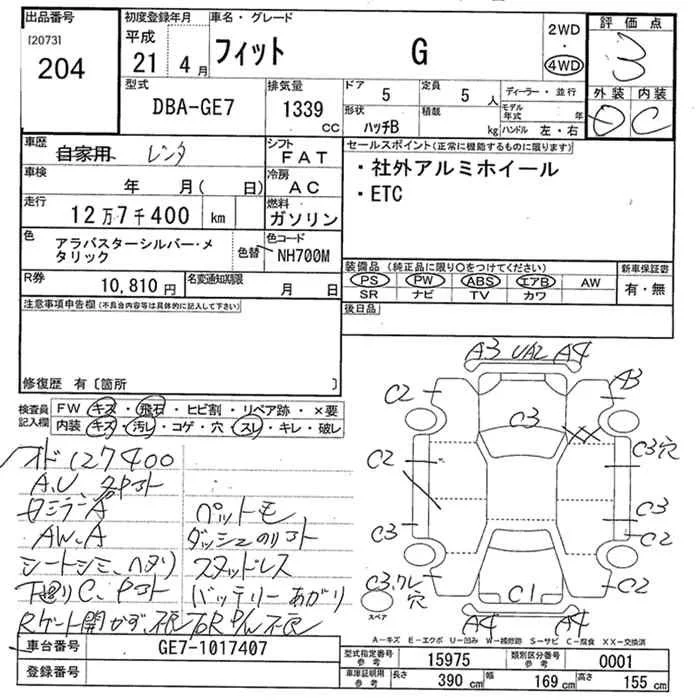 出品番号 初度登録年月 車名・グレード 2WD・4WD 評価点
[2073] 204 平成 21 4月 フィット G 3
型式 DBA-GE7 排気量 1339 cc
ドア 5 定員 5 人 ディーラー・並行
形状 ハッチB 積載 kg モデル年式 年 ハンドル 左・右
外装 内装
D C
車歴 自家用 レンタ シフト FAT
車検 年 月( 日) 冷房 AC
走行 12万7千400 km 燃料 ガソリン
色 アラバスターシルバー・メタリック 色替 色コード NH700M
R券 10,810円 名変通知期限 月 日
セールスポイント(正常に機能するものに限ります)
・社外アルミホイール
・ETC
装備品 (純正品に限り○をつけてください) 新車保証書
PS PW ABS エアB AW 有・無
SR ナビ TV カワ
後日品
注意事項申告欄(不良台内容等は具体的に記入して下さい)
修復歴 有〔箇所 〕
検査員記入欄 FW キズ・飛石・ヒビ割・リペア跡・×要
内装 キズ・汚レ・コゲ・穴・スレ・キレ・破レ
オド127400
A,U、各ヤコト
AW.A
ペットモ
スタッドレス
バッテリーあがり
Rゲート開かず、不良
A3 UA2 A4
C2 A3
C3
C2 C3穴
C3 C3
C2
C3,ワレ C2
穴
C1
スペア
A4 A4
A-キズ E-エクボ U-凹み W-補修跡 S-サビ C-腐食 XX-交換済
車台番号 GE7-1017407
登録番号
型式指定番号 参考 15975 類別区分番号 参考 0001
車庫証明用 参考 長さ 390 cm 幅 169 cm 高さ 155 cm